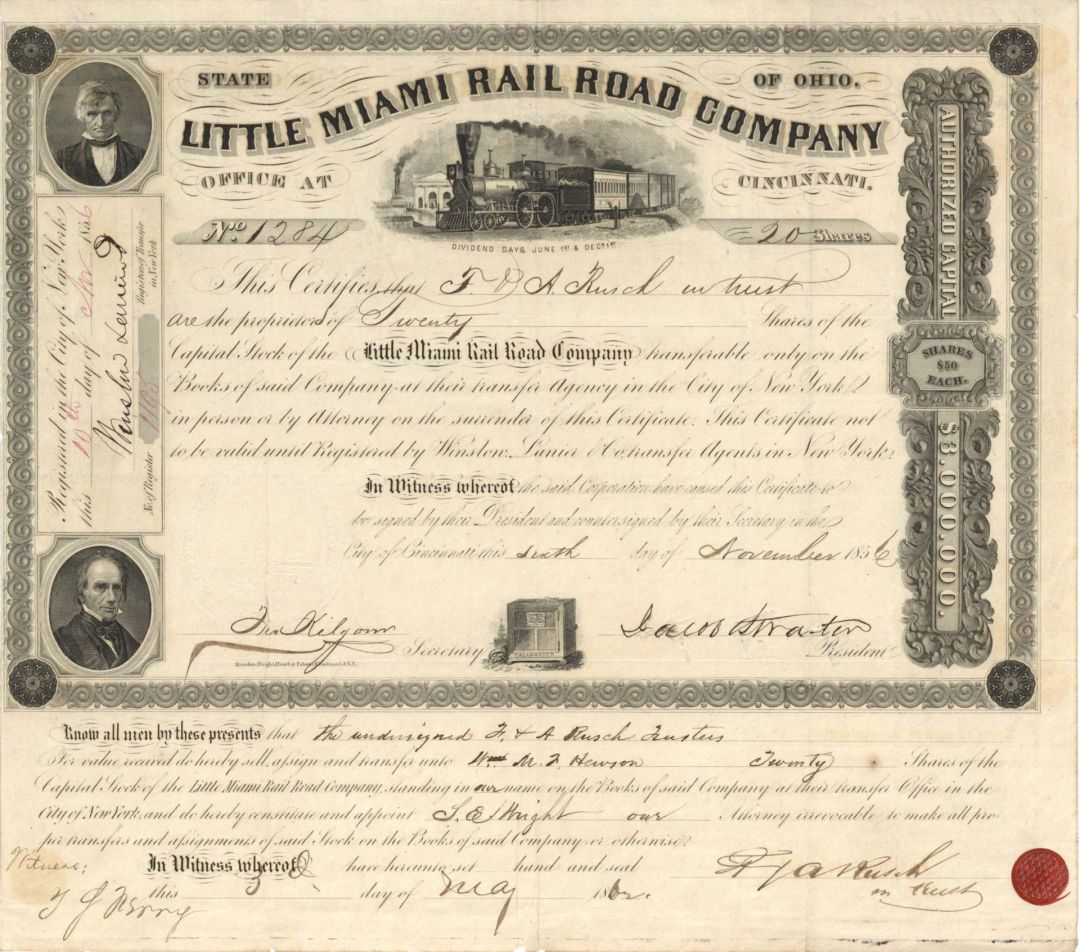 STATE OF OHIO.
LITTLE MIAMI RAIL ROAD COMPANY
OFFICE AT CINCINNATI.
No. 1284
20 Shares
DIVIDEND DAYS, JUNE 1ST & DECR. 1ST
This Certifies that F & A. Rusch in trust
are the proprietors of Twenty Shares of the
Capital Stock of the Little Miami Rail Road Company transferable only on the
Books of said Company at their transfer Agency in the City of New York
in person or by Attorney on the surrender of this Certificate. This Certificate not
to be valid until Registered by Winslow, Lanier & Co. transfer Agents in New York.
In Witness whereof the said Corporation have caused this Certificate to
be signed by their President and countersigned by their Secretary in the
City of Cincinnati this sixth day of November 1856
Jno Kilgour Secretary
SALAMANDER
Jacob Strader President
AUTHORIZED CAPITAL $3,000,000.
SHARES $50 EACH.
Registered in the City of New York
this 10th day of 1856
Winslow Lanier &
Register of Transfer in New York
No. of Register
Know all men by these presents that the undersigned F. & A Rusch Trustees
For value received do hereby sell, assign and transfer unto M. F. Hewson Twenty Shares of the
Capital Stock of the Little Miami Rail Road Company, standing in our name on the Books of said Company at their transfer Office in the
City of New York, and do hereby constitute and appoint S. E Wright our Attorney irrevocable to make all pro-
per transfers and assignments of said Stock on the Books of said Company or otherwise.
Witness;
In Witness whereof have hereunto set hand and seal
this 3 day of May 186
F & A Rusch
in trust
T J Perry